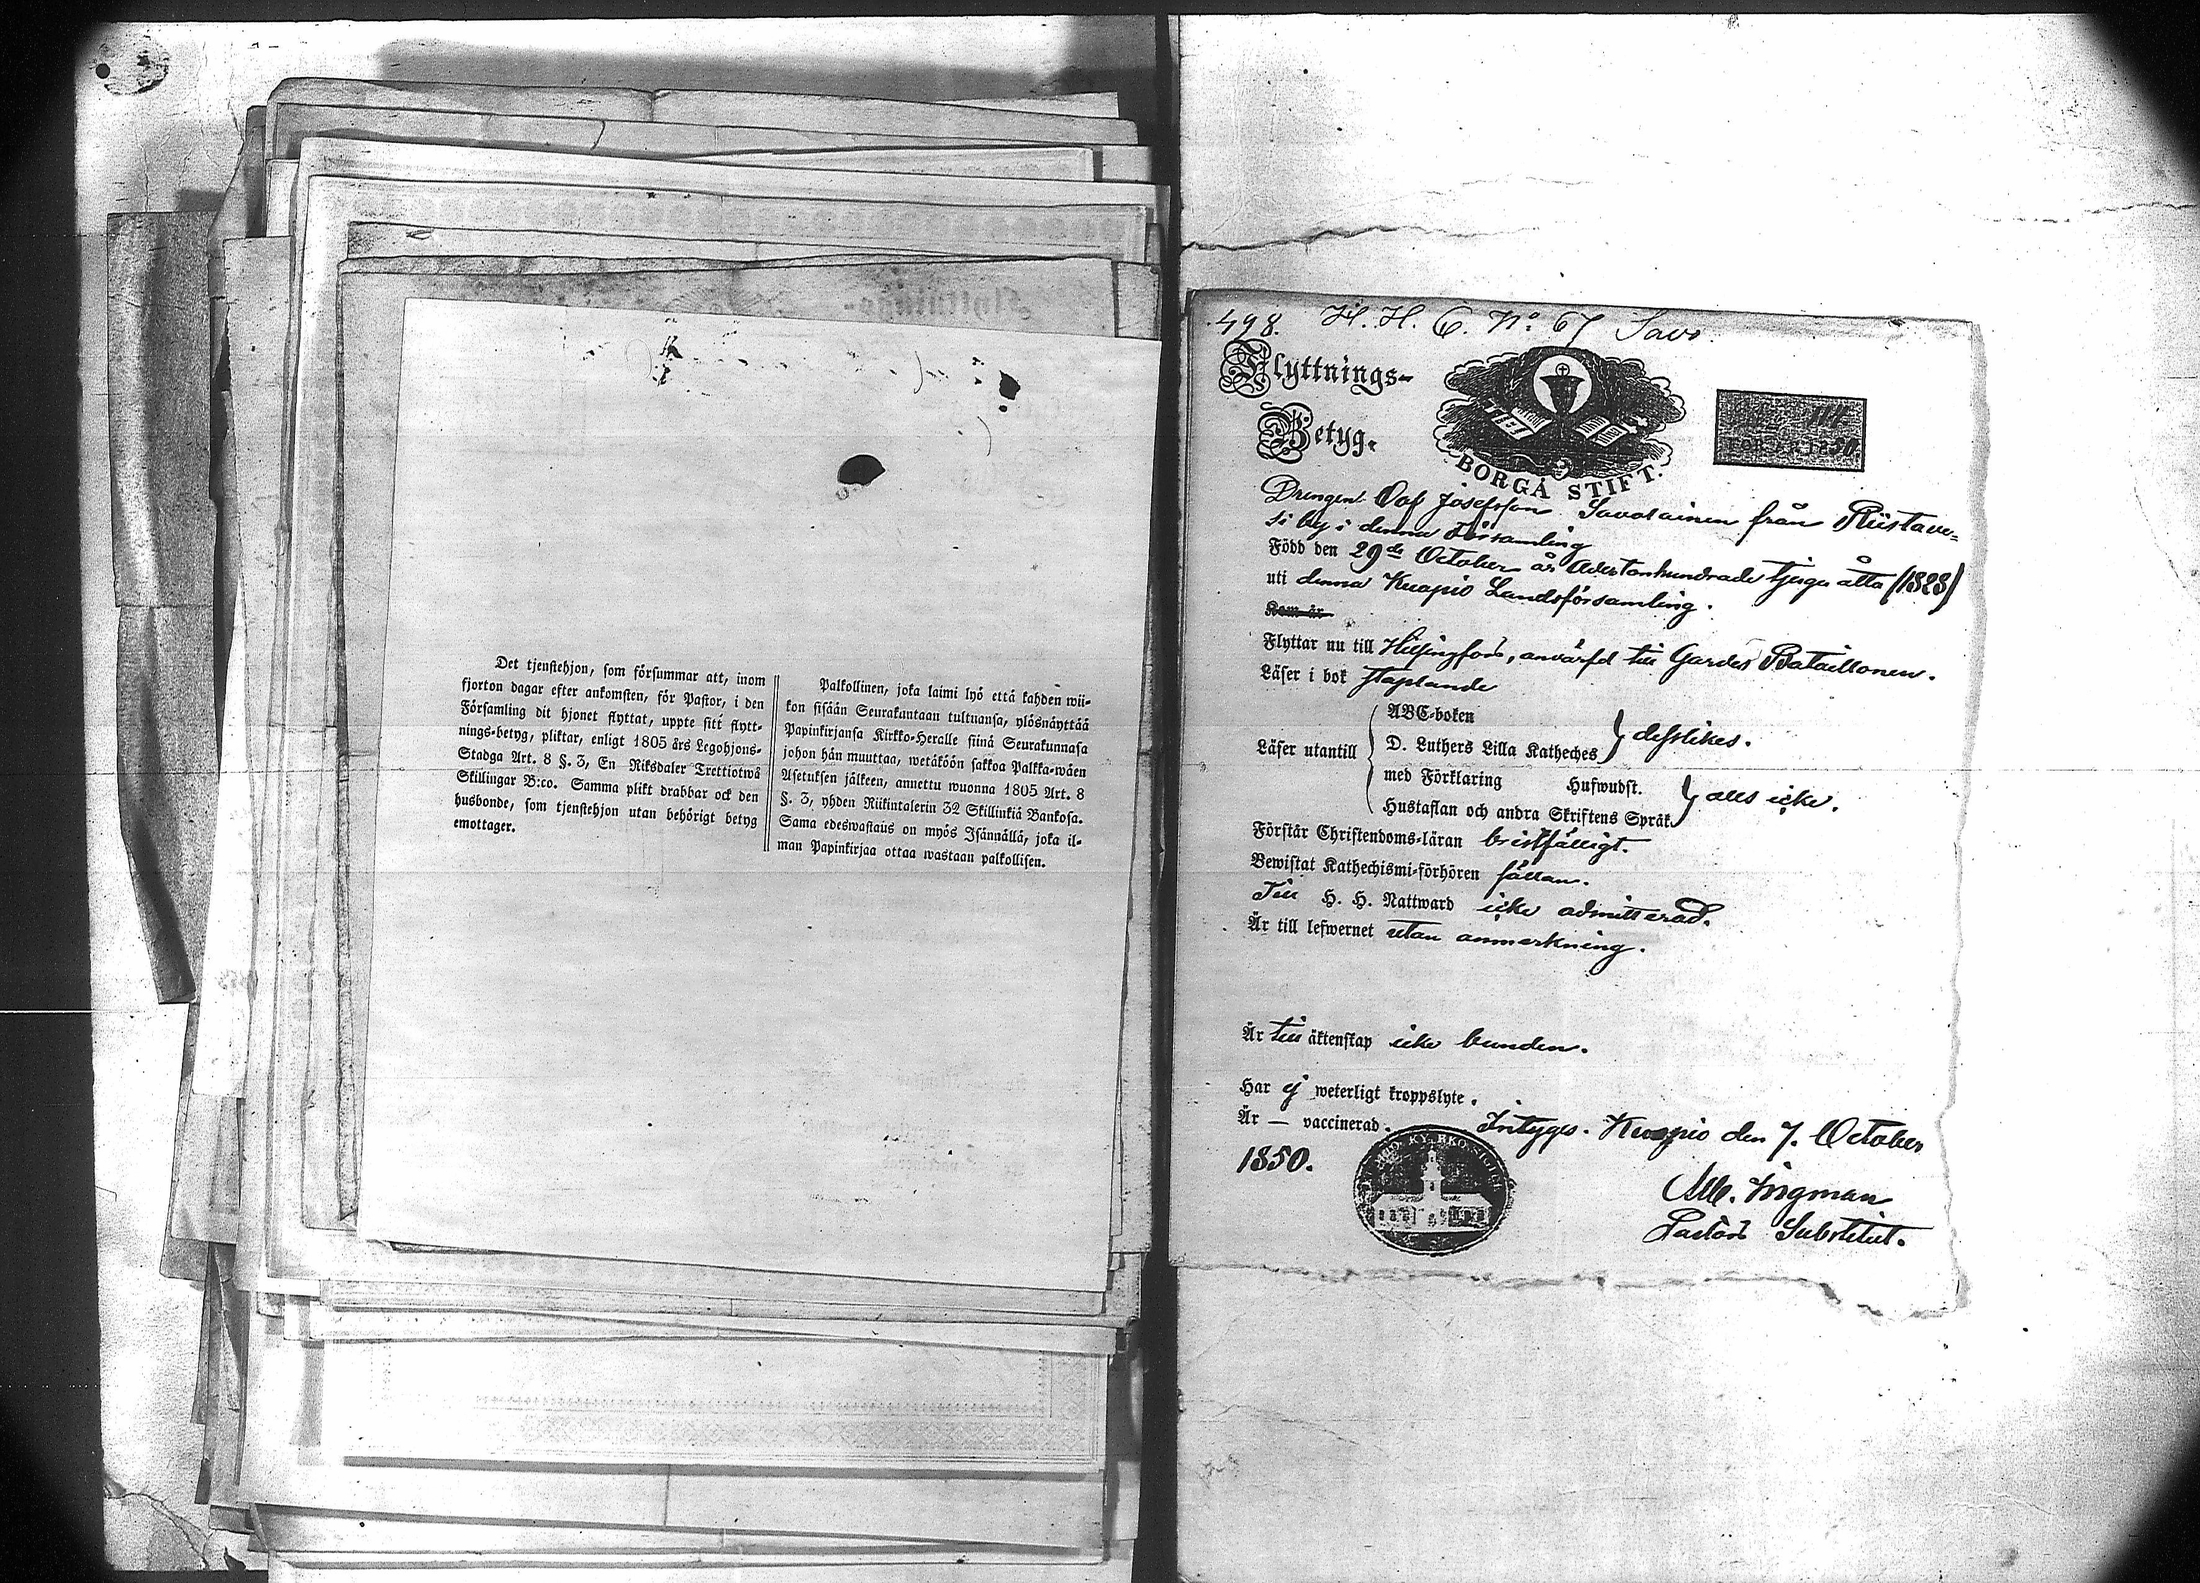 Det tjenstehjon, som försummar att, inom
fjorton dagar efter ankomsten, för Pastor, i den
Församling dit hjonet flyttat, uppte sitt flytt-
nings-betyg, pliktar, enligt 1805 års Legohjons-
Stadga Art. 8 §. 3, En Riksdaler Trettiotwå
Skillingar B:co. Samma plikt drabbar ock den
husbonde, som tjenstehjon utan behörigt betyg
emottager.
Palkollinen, joka laimi lyö että kahden wii-
kon sisään Seurakuntaan tultuansa, ylösnäyttää
Papinkirjansa Kirkko-Heralle siinä Seurakunnasa
johon hän muuttaa, wetäköön sakkoa Palkka-wäen
Asetuksen jälkeen, annettu wuonna 1805 Art. 8
§. 3, yhden Riikintalerin 32 Skillinkiä Bankosa.
Sama edeswastaus on myös Isännällä, joka il-
man Papinkirjaa ottaa wastaan palkollisen.
498. H. H. C. No 67 Savo.
Flyttnings-
Betyg.
BORGÅ STIFT.
Drengen Olof Josefsson Savolainen från Riistave=
si by i denna Församling
Född den 29de October år Adertonhundrade tjugu åtta (1828)
uti denna Kuopio Landsförsamling.
Kom år
Flyttar nu till Helsingfors, anvärfd till Gardes Bataillonen.
Läser i bok staplande
Läser utantill
ABC-boken
D. Luthers Lilla Katheches } desslikes.
med Förklaring Hufwudst.
Hustaflan och andra Skriftens Språk } alls icke.
Förstår Christendoms-läran bristfälligt.
Bewistat Kathechismi-förhören sällan.
Till H. H. Nattward icke admitterad.
Är till lefwernet utan anmerkning.
Är till äktenskap icke bunden.
Har ej weterligt kroppslyte.
Är — vaccinerad. Intygas. Kuopio den 7. October
1850.
Alb. Ingman
Pastors Substitut.